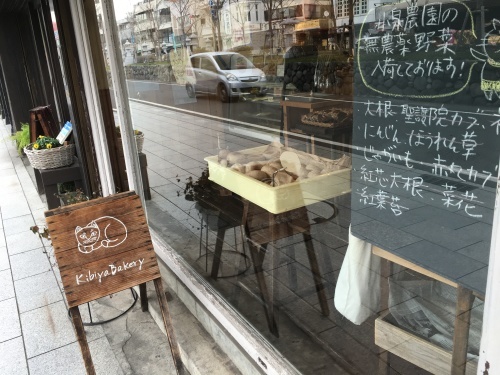 Kibiya Bakery
農園の
無農薬野菜
入荷しております!
・大根・聖護院カブ
・にんじん・ほうれん草
・じゃがいも・赤カブ
・紅芯大根、菜花
・紅葉苔